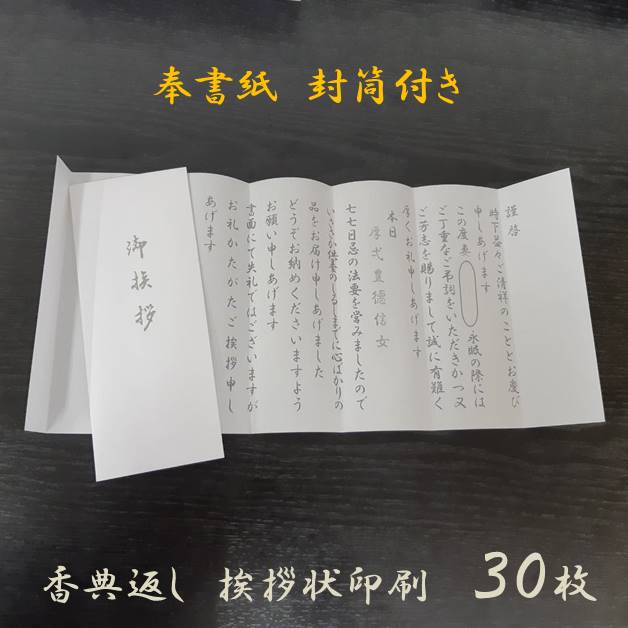 奉書紙 封筒付き
御挨拶
謹啓
時下益々ご清祥のこととお慶び
申しあげます
この度妻 永眠の際には
ご丁重なご弔詞をいただきかつ又
ご芳志を賜りまして誠に有難く
厚くお礼申しあげます
本日
厚弌豊德信女
七七日忌の法要を営みましたので
いささか供養のしるしまでに心ばかりの
品をお届け申しあげました
どうぞお納めくださいますよう
お願い申しあげます
書面にて失礼ではございますが
お礼かたがたご挨拶申し
あげます
香典返し 挨拶状印刷 30枚